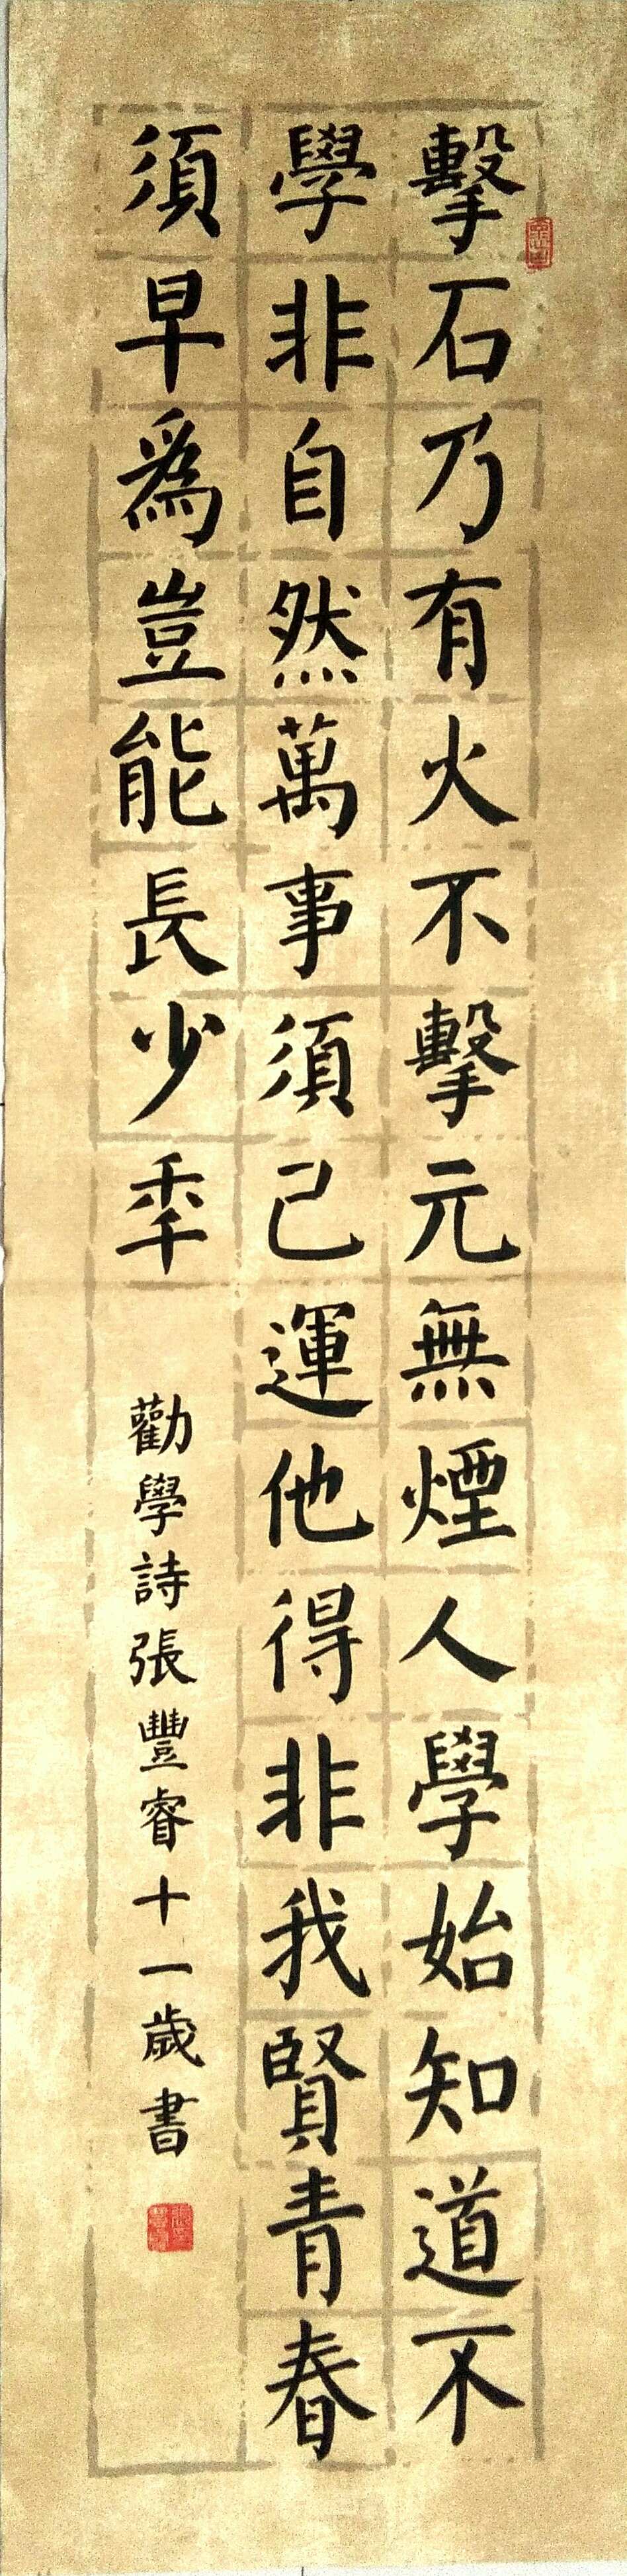 擊石乃有火不擊元無煙人學始知道不
學非自然萬事須己運他得非我賢青春
須早為豈能長少秊
勸學詩張豐睿十一歲書